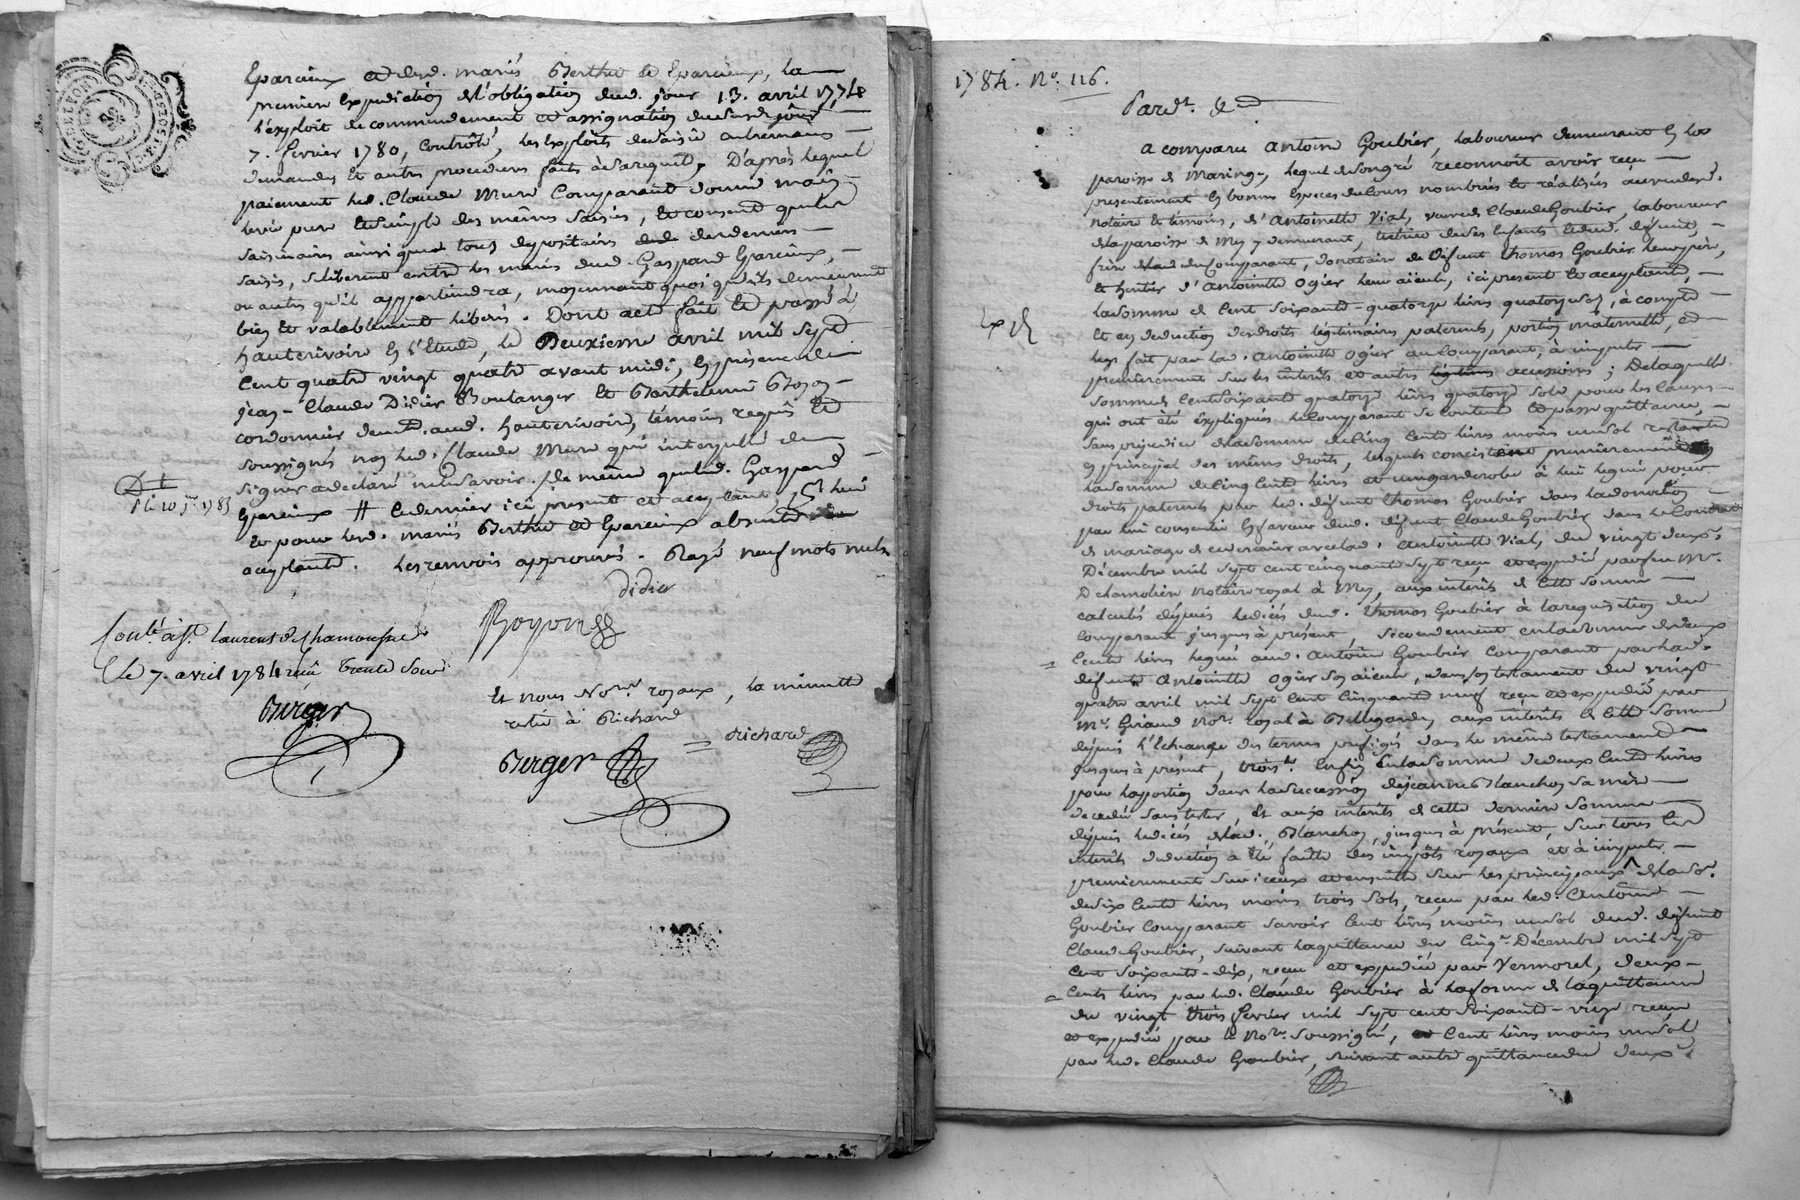 Eparcieux et desd. mariés Berthet et Eparcieux, la
premiere expedition de l'obligation dud. jour 13. avril 1774
l'exploit de commandement et assignation dudit jour
7. fevrier 1780, Controlé, les exploits de saisie
demandes et autres procedures faits à sa requete, D'après lequel
paiement led. Claude Mure Comparant donne main
levée pure et simple des mêmes saisies, et consent que les
saisinaires ainsi que tous depositaires de deniers
saisis, se liberent entre les mains dud. Gaspard Eparcieux,
ou autres qu'il appartiendra, moyennant quoi ils demeurent
bien et valablement liberés. Dont acte fait et passé à
hauterivoire en l'Etude, le Deuxieme avril mil sept
Cent quatre vingt quatre avant midi, En présence de
jean-Claude Didier Boulanger et Barthelemi Boyon
cordonnier demt. aud. hauterivoire, témoins requis et
soussignés non led. Claude Mure qui interpellé de
signer a declaré ne le savoir. de même que led. Gaspard
Eparcieux # Ce dernier ici present et acceptant,
et pour lesd. mariés Berthet et Eparcieux absents
acceptant. les renvois approuvés. Rayé neuf mots nuls
D t
1783
Didier
Boyon
Conlé. à St. Laurent de Chamousset
le 7. avril 1784 reçu Trente sous
Berger
Et nous Nores. royaux, la minutte
restée à Richard
Berger
Richard
1784. No. 116.
Pardt. &
a comparu antoine Goubier, laboureur demeurant en la
paroisse de Maringe, lequel de son gré reconnoit avoir reçu
presentement en bonnes especes de Cours nombrées et réalisées
Notaire et témoins, d'Antoinette Vial, veuve de Claude Goubier, laboureur
de la paroisse de Mey y demeurant, tutrice de ses Enfants dud. défunt,
frère du Comparant, donataire de défunt thomas Goubier leur père,
et heritier d'Antoinette Ogier leur aieule, ici presente et acceptante,
la somme de Cent soixante-quatorze livres quatorze sols, à compte
et en deduction des droits légitimaires paternels, portion maternelle, et
legs fait par lad. antoinette Ogier au Comparant, à imputer
premièrement sur les intérêts et autres accessoires; De laquelle
somme de Cent soixante quatorze livres quatorze sols pour les causes
qui ont été expliquées le Comparant se contente et passe quittance,
sans prejudice de la somme de Cinq Cents livres moins un sol restante
en principal des mêmes droits, lesquels consistent premièrement
la somme de Cinq Cents livres et une garderobe à lui leguée pour
droits paternels par led. défunt thomas Goubier dans la donation
par lui consentie en faveur dud. défunt Claude Goubier dans le Contrat
de mariage de ce dernier avec lad. antoinette Vial, du vingt deux
Décembre mil sept cent cinquante sept reçu et expedié par feu Me.
Dechamolien notaire royal à Mey, aux interets de cette somme
calculés depuis le décès dud. thomas Goubier à la requisition du
Comparant jusques à présent, secondement en la somme de deux
Cents livres leguée aud. antoine Goubier comparant par lad.
defunte antoinette Ogier son aieule, dans son testament du vingt
quatre avril mil sept Cent Cinquante neuf reçu et expedié par
Me. Giraud Nore. royal à Bellegarde, aux intérêts de cette somme
depuis l'Echeance des termes prefigés dans le même testament
jusques à présent, trois t. Enfin En la somme de deux Cents livres
pour la portion dans la succession de jeanne Blanchon sa mère
decedée sans tester, et aux interets de cette derniere somme
depuis le décès de lad. Blanchon, jusques à présent, sur tous les
interêts deduction a été faitte des impôts royaux et à imputer
premierement sur iceux et ensuitte sur les principaux de la so.
de six Cents livres moins trois sols, reçue par led. Antoine
Goubier Comparant savoir Cent livres moins un sol dud. défunt
Claude Goubier, suivant la quittance du Cinq. Décembre mil sept
Cent soixante-dix, reçue et expediée par Vermorel, deux
Cents livres par led. Claude Goubier à la forme de la quittance
du vingt trois fevrier mil sept cent soixante-treize reçue
et expediée par le Nore. soussigné, et Cent livres moins un sol
par led. Claude Goubier, suivant autre quittance du deux